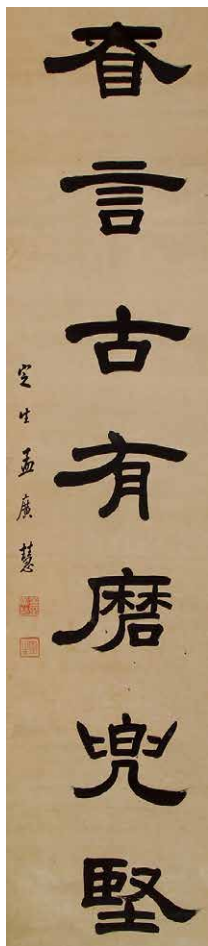 眷言古有磨兜堅
定生孟廣慧